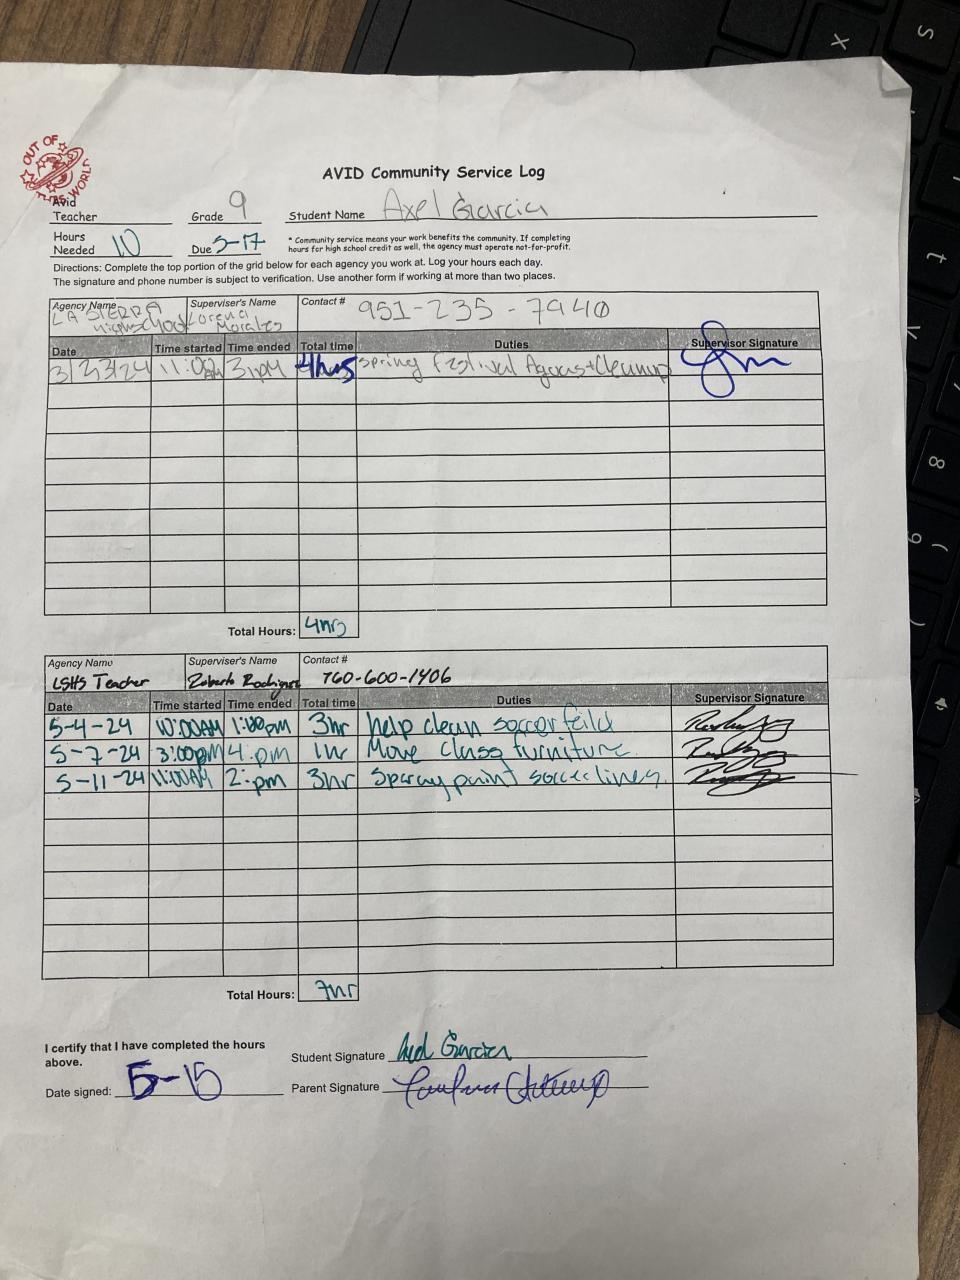 OUT OF
THIS WORLD
AVID Community Service Log
Avid
Teacher Grade 9 Student Name Axel Garcia
Hours
Needed 10 Due 5-17
* Community service means your work benefits the community. If completing
hours for high school credit as well, the agency must operate not-for-profit.
Directions: Complete the top portion of the grid below for each agency you work at. Log your hours each day.
The signature and phone number is subject to verification. Use another form if working at more than two places.
Agency Name Supervisor's Name Contact # 951-235-7940
LA SIERRA Lorena
Highschool Morales
Date Time started Time ended Total time Duties Supervisor Signature
3/23/24 11:00AM 3:PM 4hrs Spring Festival +Cleanup
Total Hours: 4hrs
Agency Name Supervisor's Name Contact #
LSHS Teacher Roberto Rodriguez 760-600-1406
Date Time started Time ended Total time Duties Supervisor Signature
5-4-24 10:00AM 1:00pm 3hr help clean soccer feild
5-7-24 3:00pm 4:pm 1hr Move Class furniture.
5-11-24 11:00AM 2:pm 3hr Sparay paint soccer lines.
Total Hours: 7hr
I certify that I have completed the hours
above.
Student Signature Axel Garcia
Date signed: 5-15 Parent Signature
S
X
t
8
9
(
)